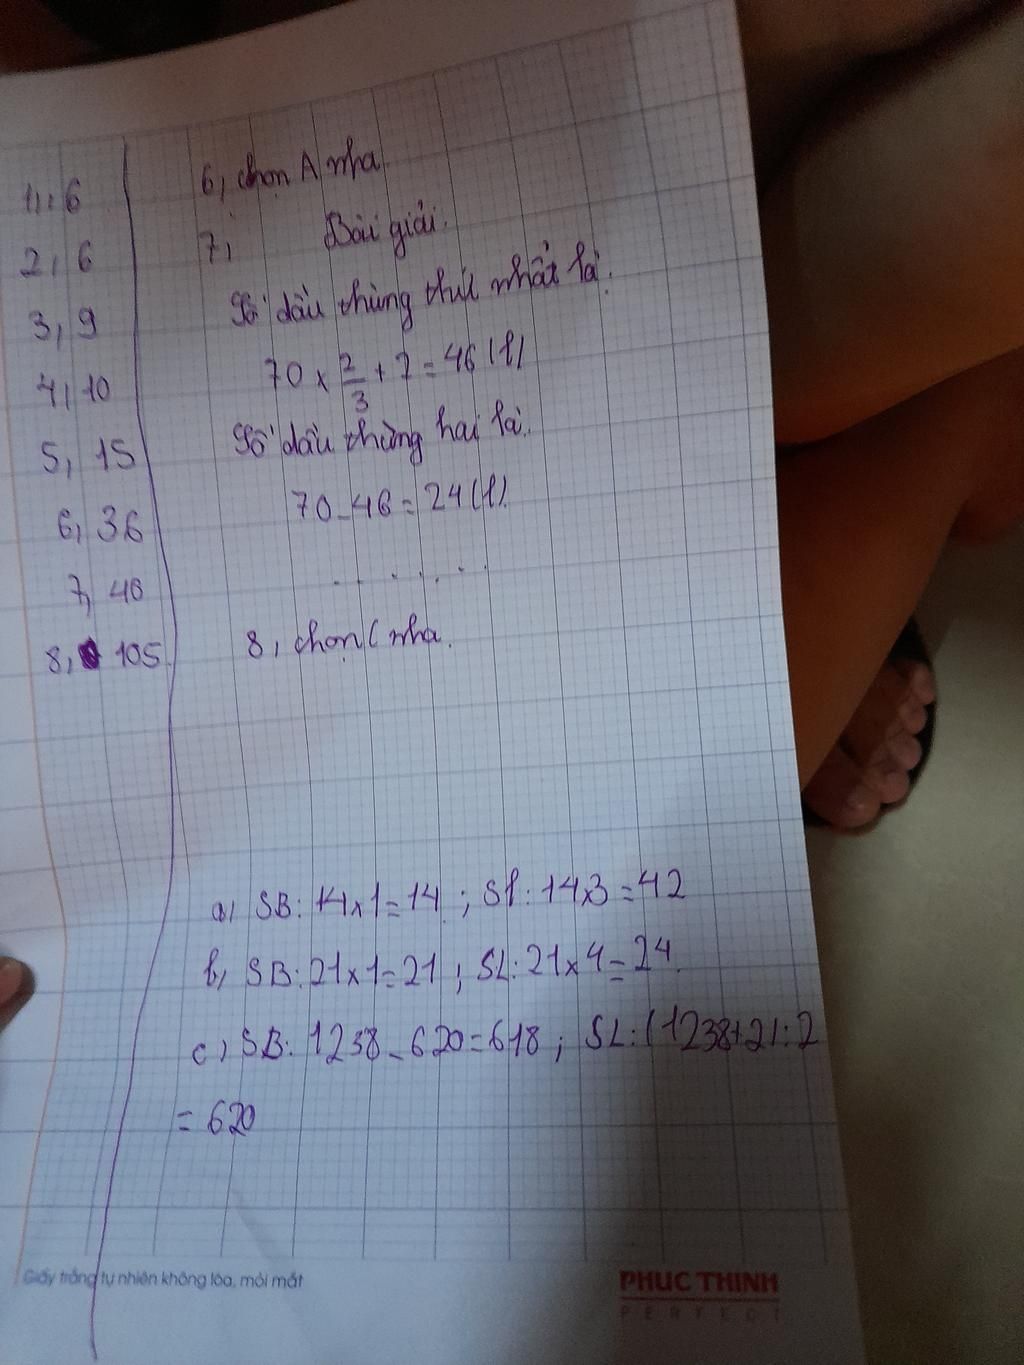 1, 6
2, 6
3, 9
4, 10
5, 15
6, 36
7, 46
8, 105
6, chọn A nha
7, Bài giải.
Số dầu thùng thứ nhất là:
70 x 2/3 + 7 = 46 (l)
Số dầu thùng hai là:
70 - 46 = 24 (l)
.......
8, chọn C nha.
a, SB: 14 x 1 = 14 ; SL: 14 x 3 = 42
b, SB: 21 x 1 = 21 ; SL: 21 x 4 = 24
c, SB: 1238 - 620 = 618 ; SL: (1238 + 2) : 2
= 620
Giấy trắng tự nhiên không lóa, mỏi mắt
PHUC THINH
PERFECT